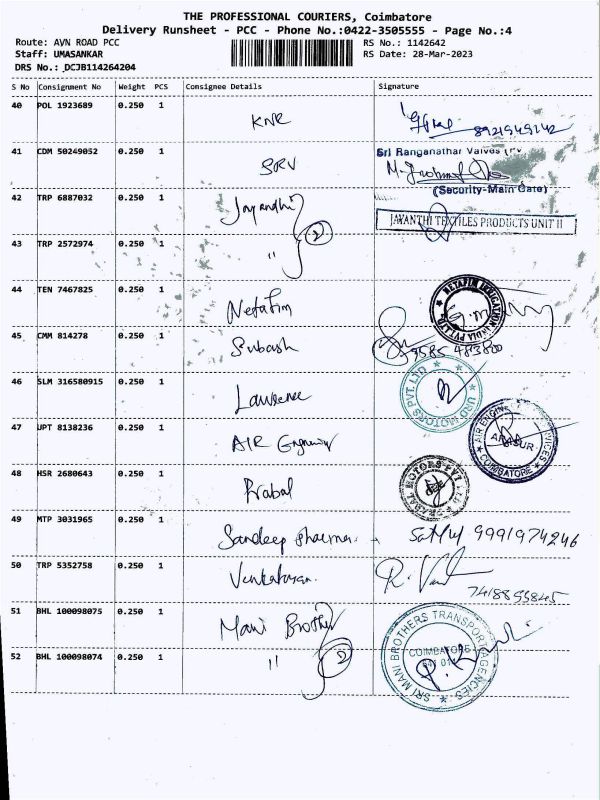 THE PROFESSIONAL COURIERS, Coimbatore
Delivery Runsheet - PCC - Phone No.:0422-3505555 - Page No.:4
Route: AVN ROAD PCC
RS No.: 1142642
Staff: UMASANKAR
RS Date: 28-Mar-2023
DRS No.: DCJB114264204
S No Consignment No Weight PCS Consignee Details Signature
40 POL 1923689 0.250 1 KNR
41 CDM 50249052 0.250 1 SRV Sri Ranganathar Valves (PV
(Security-Main Gate)
42 TRP 6887032 0.250 1 Jayandhi JAYANTHI TEXTILES PRODUCTS UNIT II
2
43 TRP 2572974 0.250 1 "
44 TEN 7467825 0.250 1 Netafim NETAFIM IRRIGATION INDIA PVT.LTD.
45 CMM 814278 0.250 1 Subash 9585 483800
46 SLM 316580915 0.250 1 Lawrence URO MOTORS PVT. LTD
47 UPT 8138236 0.250 1 AIR Engineering AIR ENGINE SERVICES COIMBATORE
48 HSR 2680643 0.250 1 Prabal PRABAL MOTORS PVT LTD
49 MTP 3031965 0.250 1 Sandeep Sharma 9991974246
50 TRP 5352758 0.250 1 Venkatesan
7418855845
51 BHL 100098075 0.250 1 Mani Brother SRI MANI BROTHERS TRANSPORT AGENCIES
COIMBATORE
52 BHL 100098074 0.250 1 " 2